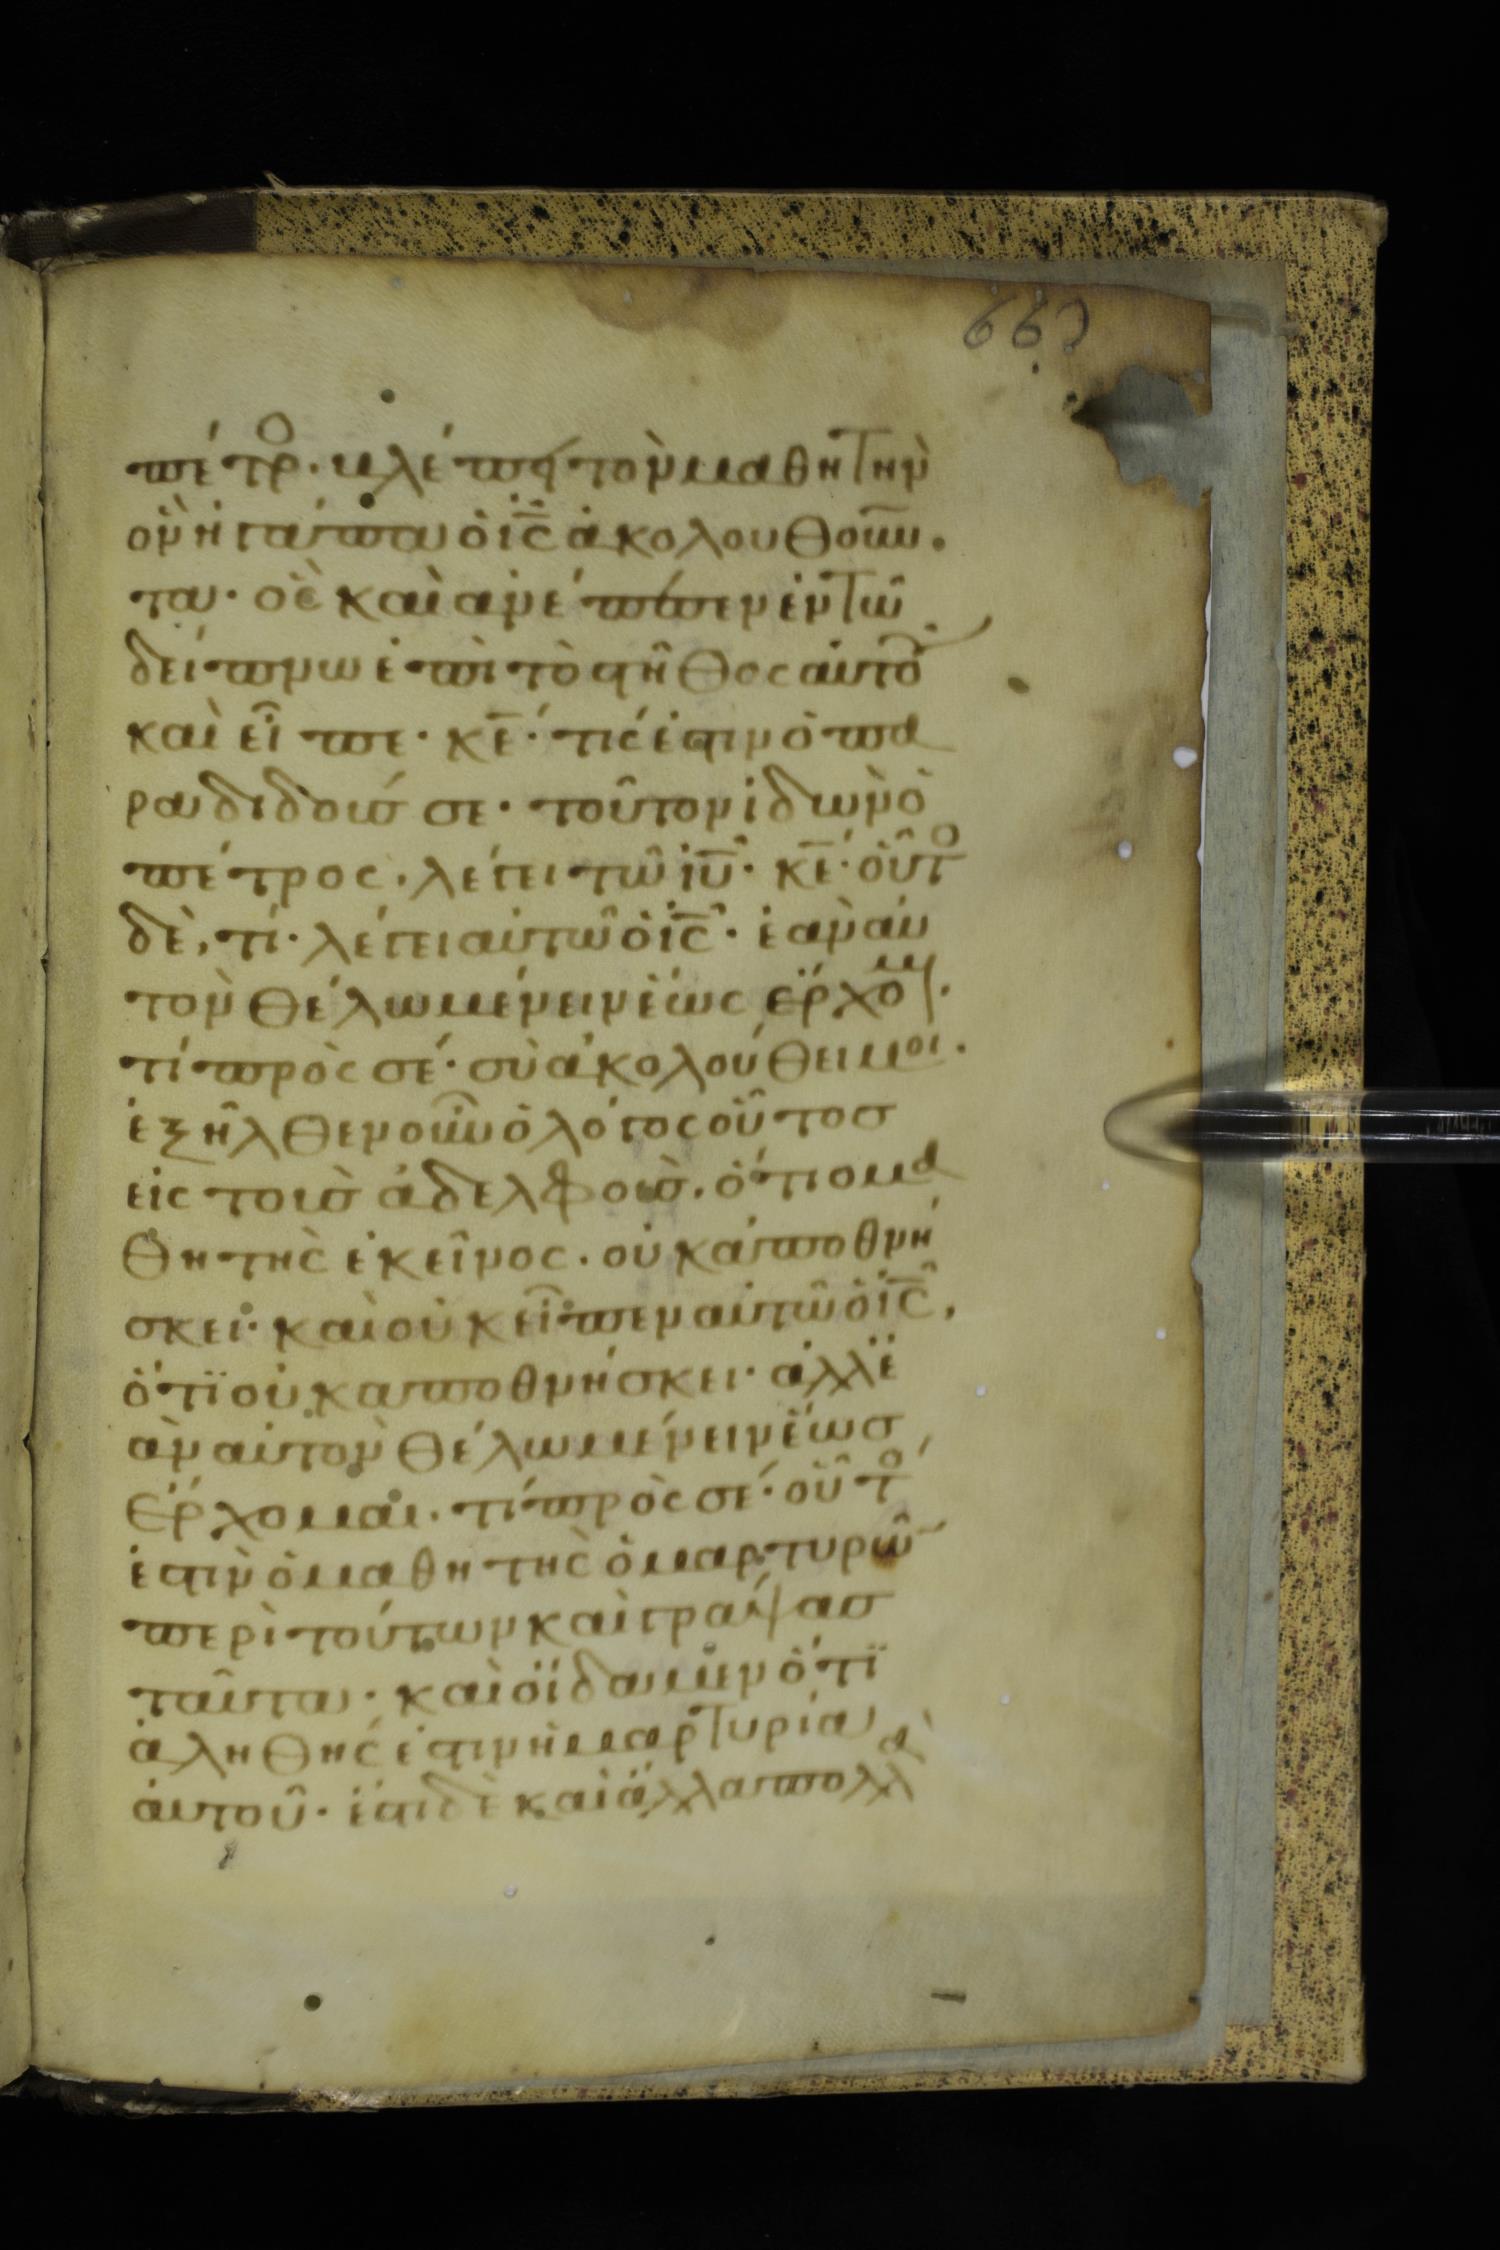 663
πέτρο· βλέπει τὸν μαθητὴν
ὃν ἠγάπα ὁ ις̅ ἀκολουθοῦν·
τα· ὃς καὶ ἀνέπεσεν ἐν τῶ
δείπνω ἐπὶ τὸ στῆθος αὐτοῦ
καὶ εἶπε· κε̅· τίς ἐστιν ὁ πα
ραδιδούς σε· τοῦτον ἰδὼν ὁ
πέτρος· λέγει τῶ ιυ̅· κε̅· οὗτο
δὲ, τί· λέγει αὐτῶ ὁ ις̅· ἐὰν αὐ
τὸν θέλω μένειν ἕως ἔρχομαι·
τί πρὸς σέ· σὺ ἀκολούθει μοι·
ἐξῆλθεν οὖν ὁ λόγος οὗτοσ
εἰς τοὺσ ἀδελφοὺσ· ὅτι ὁ μα
θητὴς ἐκεῖνος· οὐκ ἀποθνή
σκει· καὶ οὐκ εἶπεν αὐτῶ ὁ ις̅·
ὅτι οὐκ ἀποθνήσκει· ἀλλ ἐ
ὰν αὐτὸν θέλω μένειν ἕωσ
ἔρχομαι· τί πρὸς σέ· οὗτο
ἐστιν ὁ μαθητὴς ὁ μαρτυρῶ
περὶ τούτων καὶ γράψασ
ταῦτα· καὶ οἴδαμεν ὅτι
ἀληθής ἐστιν ἡ μαρτυρία
αὐτοῦ· ἔστι δὲ καὶ ἄλλα πολλὰ